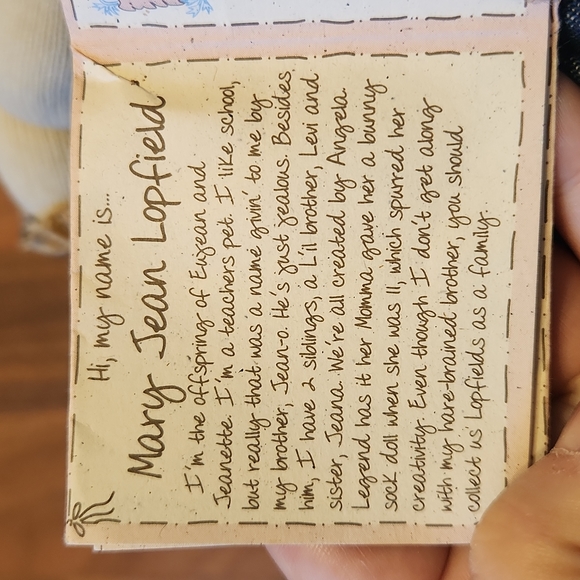 Hi, my name is...
Mary Jean Lopfield
I'm the offspring of Eugean and
Jeanette. I'm a teachers pet. I like school,
but really that was a name givin' to me by
my brother, Jean-o. He's just jealous. Besides
him, I have 2 siblings, a L'il brother, Levi and
sister, Jeana. We're all created by Angela.
Legend has it her Momma gave her a bunny
sock doll when she was 11, which spurred her
creativity. Even though I don't get along
with my hare-brained brother, you should
collect us Lopfields as a family.